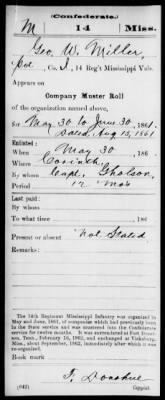 (Confederate.)
M 14 Miss.
Geo. W. Miller
Pvt, Co. I, 14 Reg't Mississippi Vols.
Appears on
Company Muster Roll
of the organization named above,
for May 30 to June 30, 1861.
Dated Aug 15, 1861
Enlisted:
When May 30, 186
Where Corinth
By whom Capt. Gholson
Period 12 Mos
Last paid:
By whom
To what time , 186
Present or absent Not Stated
Remarks:
The 14th Regiment Mississippi Infantry was organized in
May and June, 1861, of companies which had previously been
in the State service and was mustered into the Confederate
service for twelve months. It was surrendered at Fort Donel-
son, Tenn., February 16, 1862, and exchanged at Vicksburg,
Miss., about September, 1862, immediately after which it was
re-organized.
Book mark
(642) J. Donohue
Copyist.